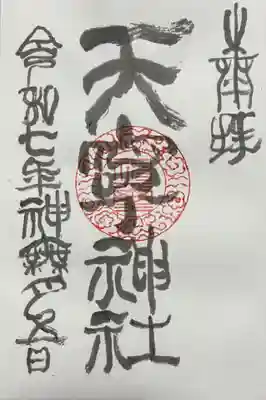 奉拝
天神社
令和七年神無月日